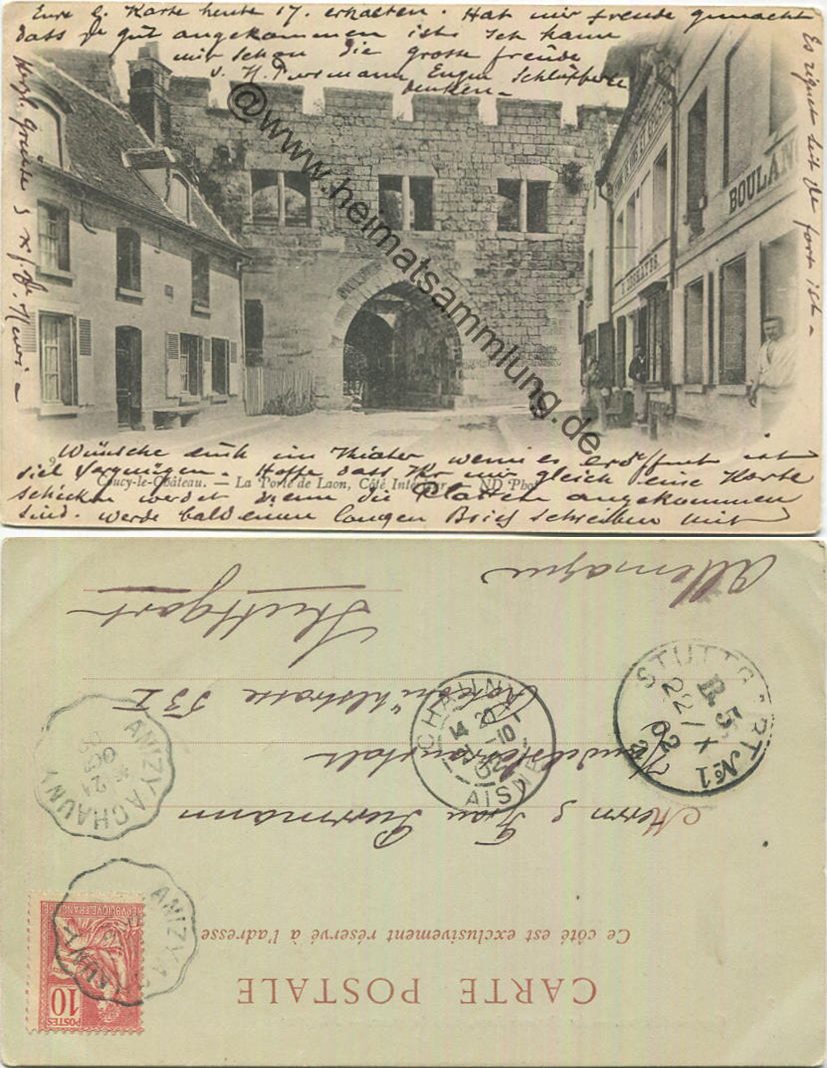 Eure l. Karte heute 17. erhalten. Hat mir freude gemacht
dass Ihr gut angekommen ist. Ich kann
mir schon die grosse freude
v. H. Purrmann, Eugen
denken. —
Es regnet seit der fort ist —
Herzl. Grüsse
BOULAN
@www.heimatsammlung.de
Wünsche euch im Theater wenn es eröffnet ist
viel Vergnügen. Hoffe dass Ihr mir gleich eine Karte
Coucy-le-Château. — La Porte de Laon, Côté Intérieur — ND Phot
schicken werdet wenn die Platten angekommen
sind. Werde bald einen langen Brief schreiben mit
CARTE POSTALE
Ce côté est exclusivement réservé à l'adresse
Herrn & Frau Purrmann
Stuttgart
Allemagne
POSTES
10
REPUBLIQUE FRANCAISE
ANIZY A CHAUNY
ANIZY A CHAUNY
21
OCT
02
CHAUNY
14 20
OCT
02
AISNE
STUTTGART No 1
B. 5
22/X
02